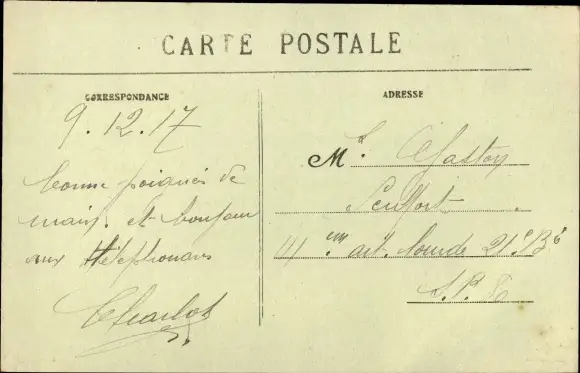 CARTE POSTALE
CORRESPONDANCE
9.12.17
bonne poignées de
main. et bonjour
aux téléphonars
Charlot
ADRESSE
M. r Gaston
111 em art. lourde 21e Bie
S.P.